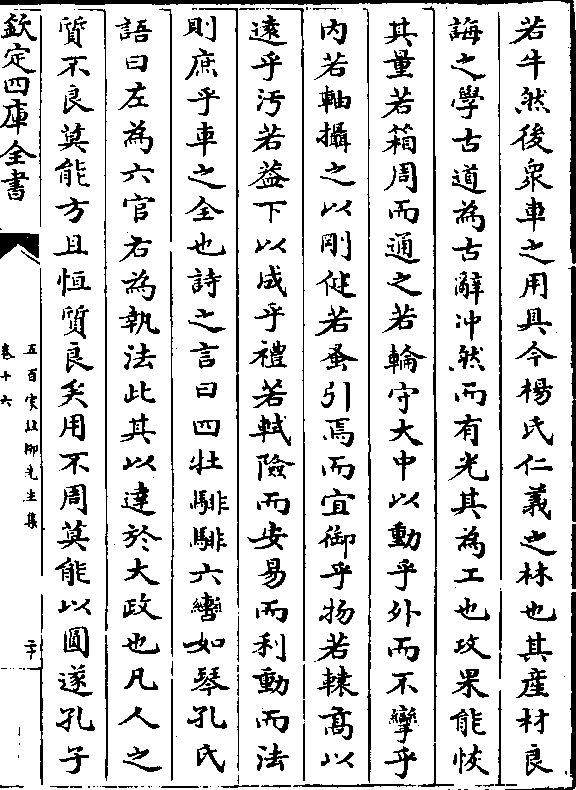 若牛然後衆車之用具今楊氏仁義之林也其產材良
誨之學古道為古辭冲然而有光其為工也攻果能恢
其量若箱周而通之若輪守大中以動乎外而不攣乎
内若軸攝之以剛健若蚤引焉而宜御乎物若轅高以
遠乎汚若蓋下以成乎禮若軾險而安易而利動而法
則庶乎車之全也詩之言曰四牡騑騑六轡如琴孔氏
語曰左為六官右為執法此其以達於大政也凡人之
質不良莫能方且恒質良矣用不周莫能以圓遂孔子
欽定四庫全書
五百家註柳先生集
卷十六
二十